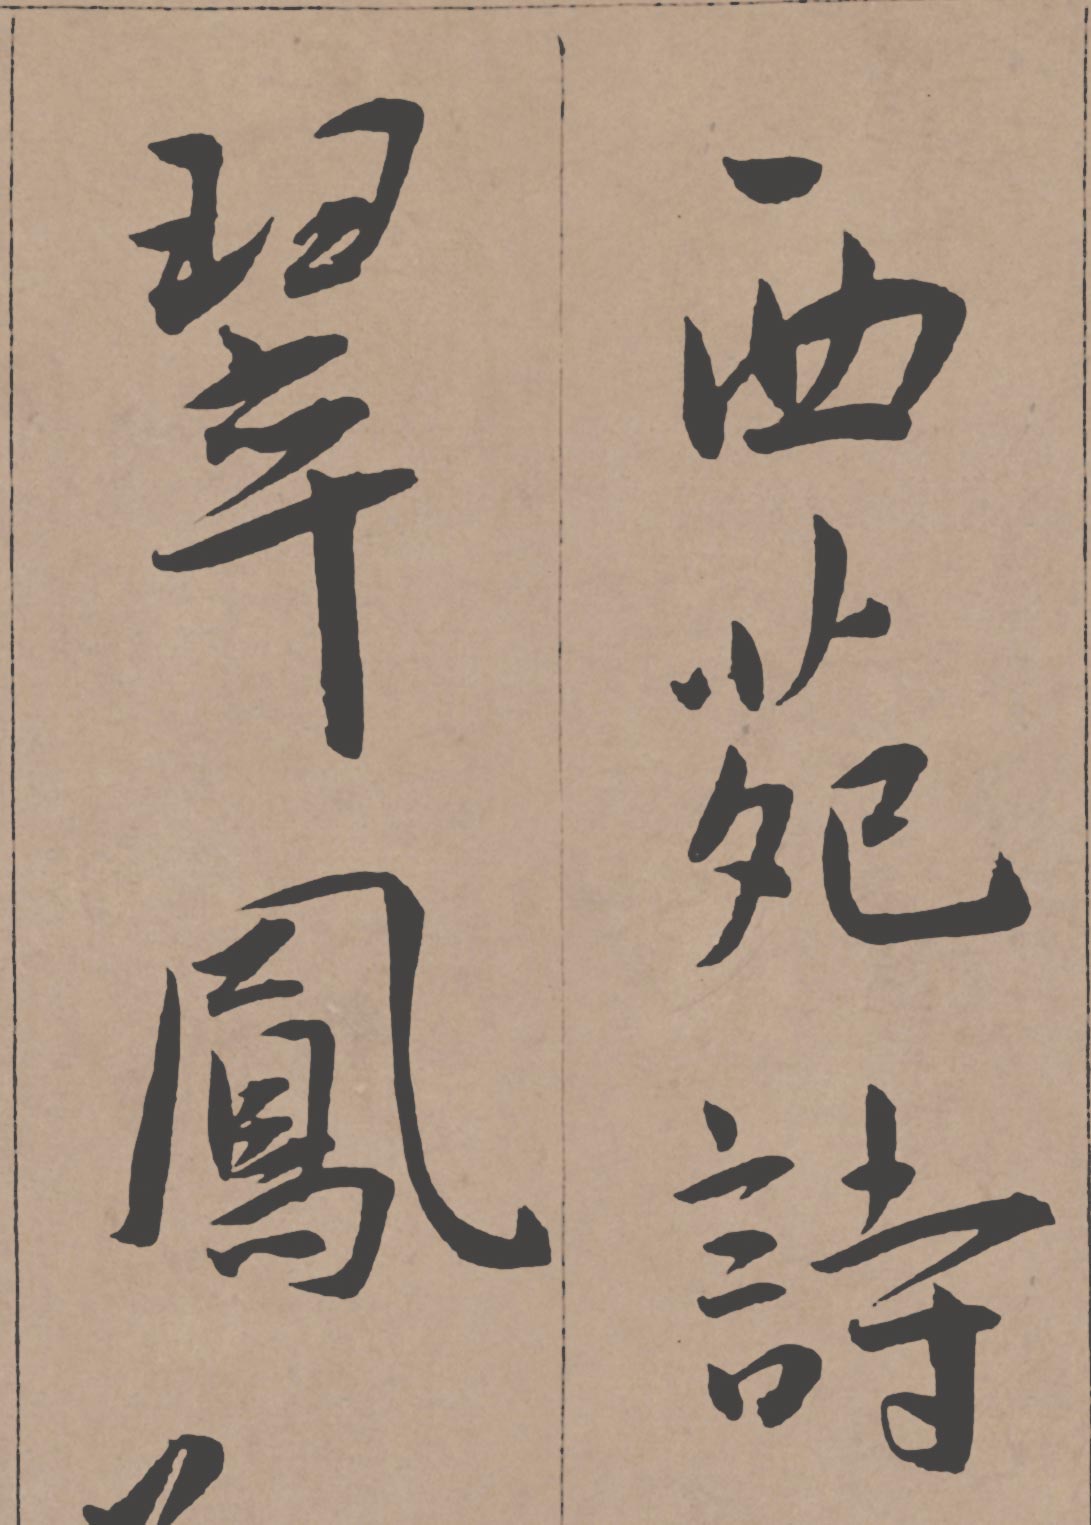 西苑詩
翠鳳